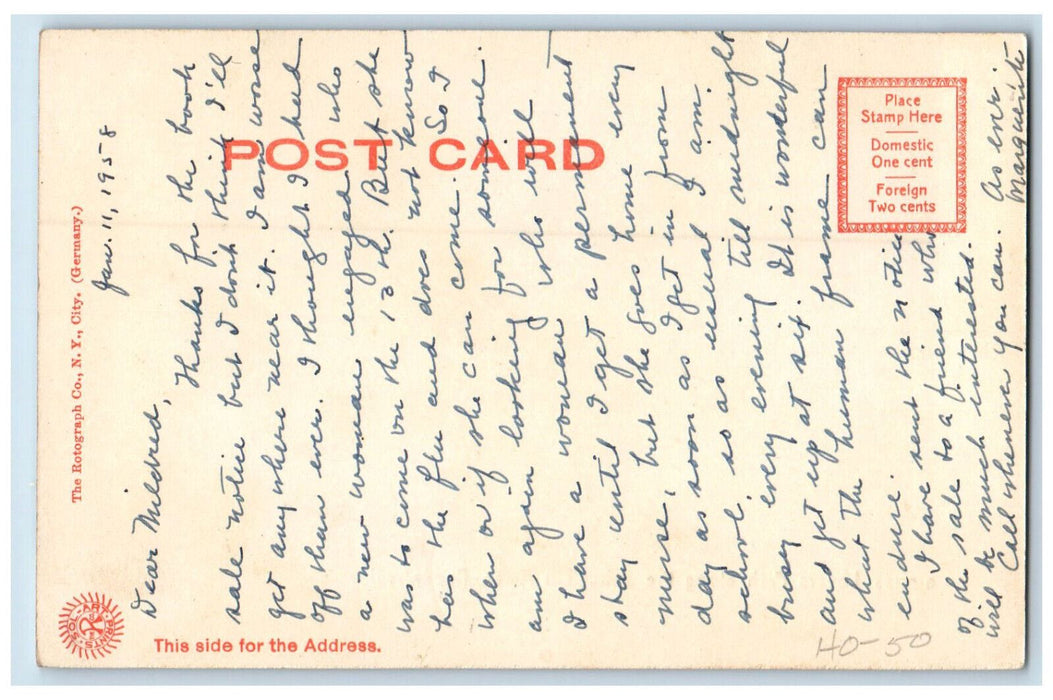 POST CARD
Place
Stamp Here
Domestic
One cent
Foreign
Two cents
The Rotograph Co., N. Y., City. (Germany.)
SOL-ART PRINTS
This side for the Address.
Jan. 11, 1958
Dear Mildred,
Thanks for the book
sale notice but I don't think I'll
get any where near it. I am worse
off than ever. I thought I had
a new woman engaged who
was to come on the 13th. But she
has the flu and does not know
when or if she can come. So I
am again looking for someone.
I have a woman who will
stay until I get a permanent
nurse, but she goes home every
day as soon as I get in from
school. So as usual I am
busy every evening till midnight
and get up at six. It is wonderful
what the human frame can
endure.
I have sent the notice
of the sale to a friend who
will be much interested.
Call whenever you can.
As ever
Marguerite
40-50